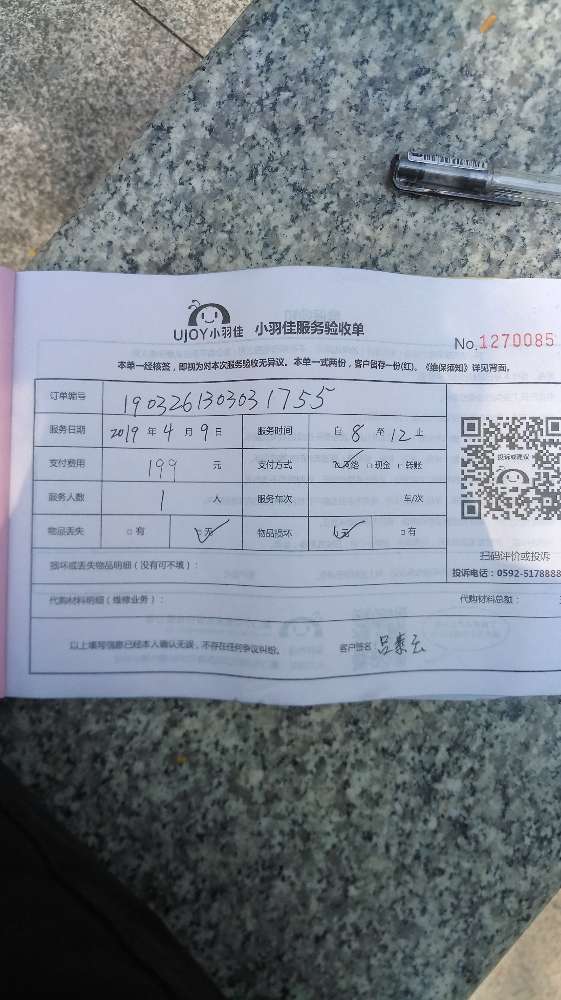 UJOY小羽佳 小羽佳服务验收单
No.1270085
本单一经核签，即视为对本次服务验收无异议。本单一式两份，客户留存一份(红)。《维保须知》详见背面。
订单编号 190326130303 1755
服务日期 2019 年 4 月 9 日 服务时间 自 8 至 12 止
支付费用 199 元 支付方式 网络 □现金 □转账
服务人数 1 人 服务车次 车/次
物品丢失 □有 无 物品损坏 无 □有
损坏或丢失物品明细（没有可不填）：
代购材料明细（维修业务）： 代购材料总额：
以上填写信息已经本人确认无误，不存在任何争议纠纷。 客户签名
投诉或建议
扫码评价或投诉
投诉电话：0592-5178888